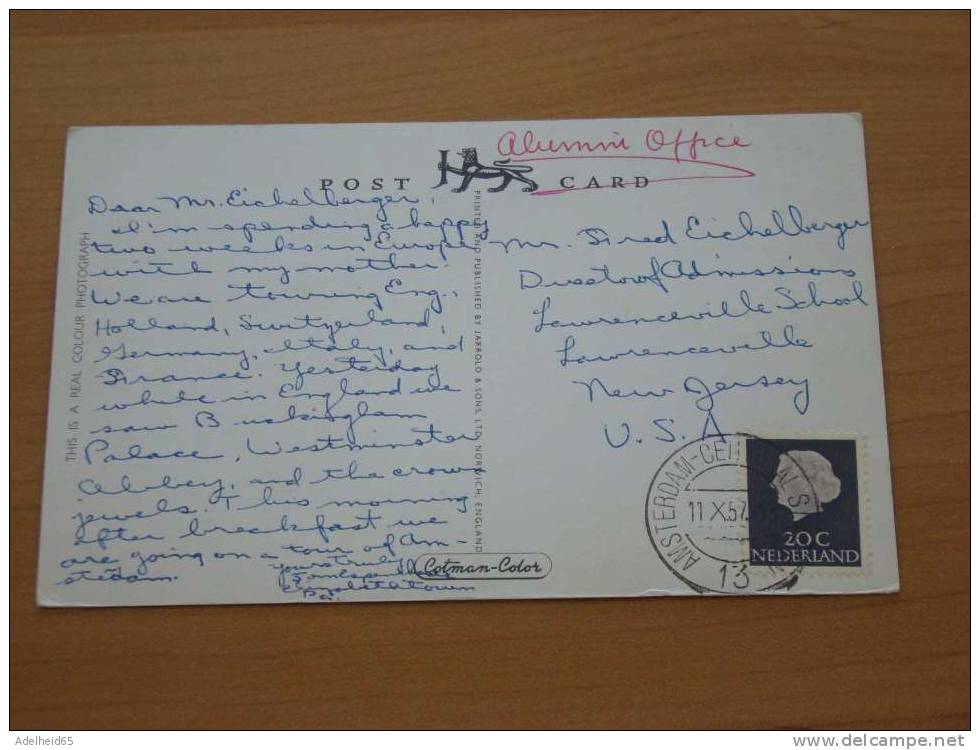 Alumni Office
POST CARD
Dear Mr. Eichelberger,
I'm spending a happy
two weeks in Europe
with my mother.
We are touring Eng.,
Holland, Switzerland,
Germany, Italy, and
France. Yesterday
while in England we
saw Buckingham
Palace, Westminster
Abbey, and the crown
jewels. This morning
after breakfast we
are going on a tour of Am-
sterdam.
yours truly
Elizabethtown
Pa.
THIS IS A REAL COLOUR PHOTOGRAPH
PRINTED AND PUBLISHED BY JARROLD & SONS, LTD, NORWICH, ENGLAND
Cotman-Color
Mr. Fred Eichelberger
Director of Admissions
Lawrenceville School
Lawrenceville
New Jersey
U.S.A
AMSTERDAM-CE
11 X.57
13
20C
NEDERLAND
Adelheid65
www.delcampe.net